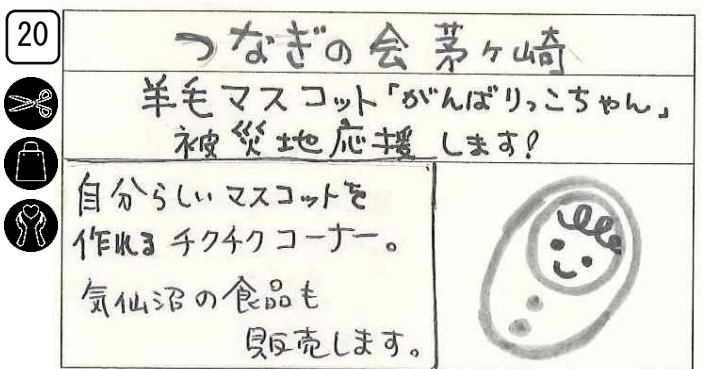 20
つなぎの会 茅ヶ崎
羊毛マスコット「がんばりっこちゃん」
被災地応援します!
自分らしいマスコットを
作れるチクチクコーナー。
気仙沼の食品も
販売します。